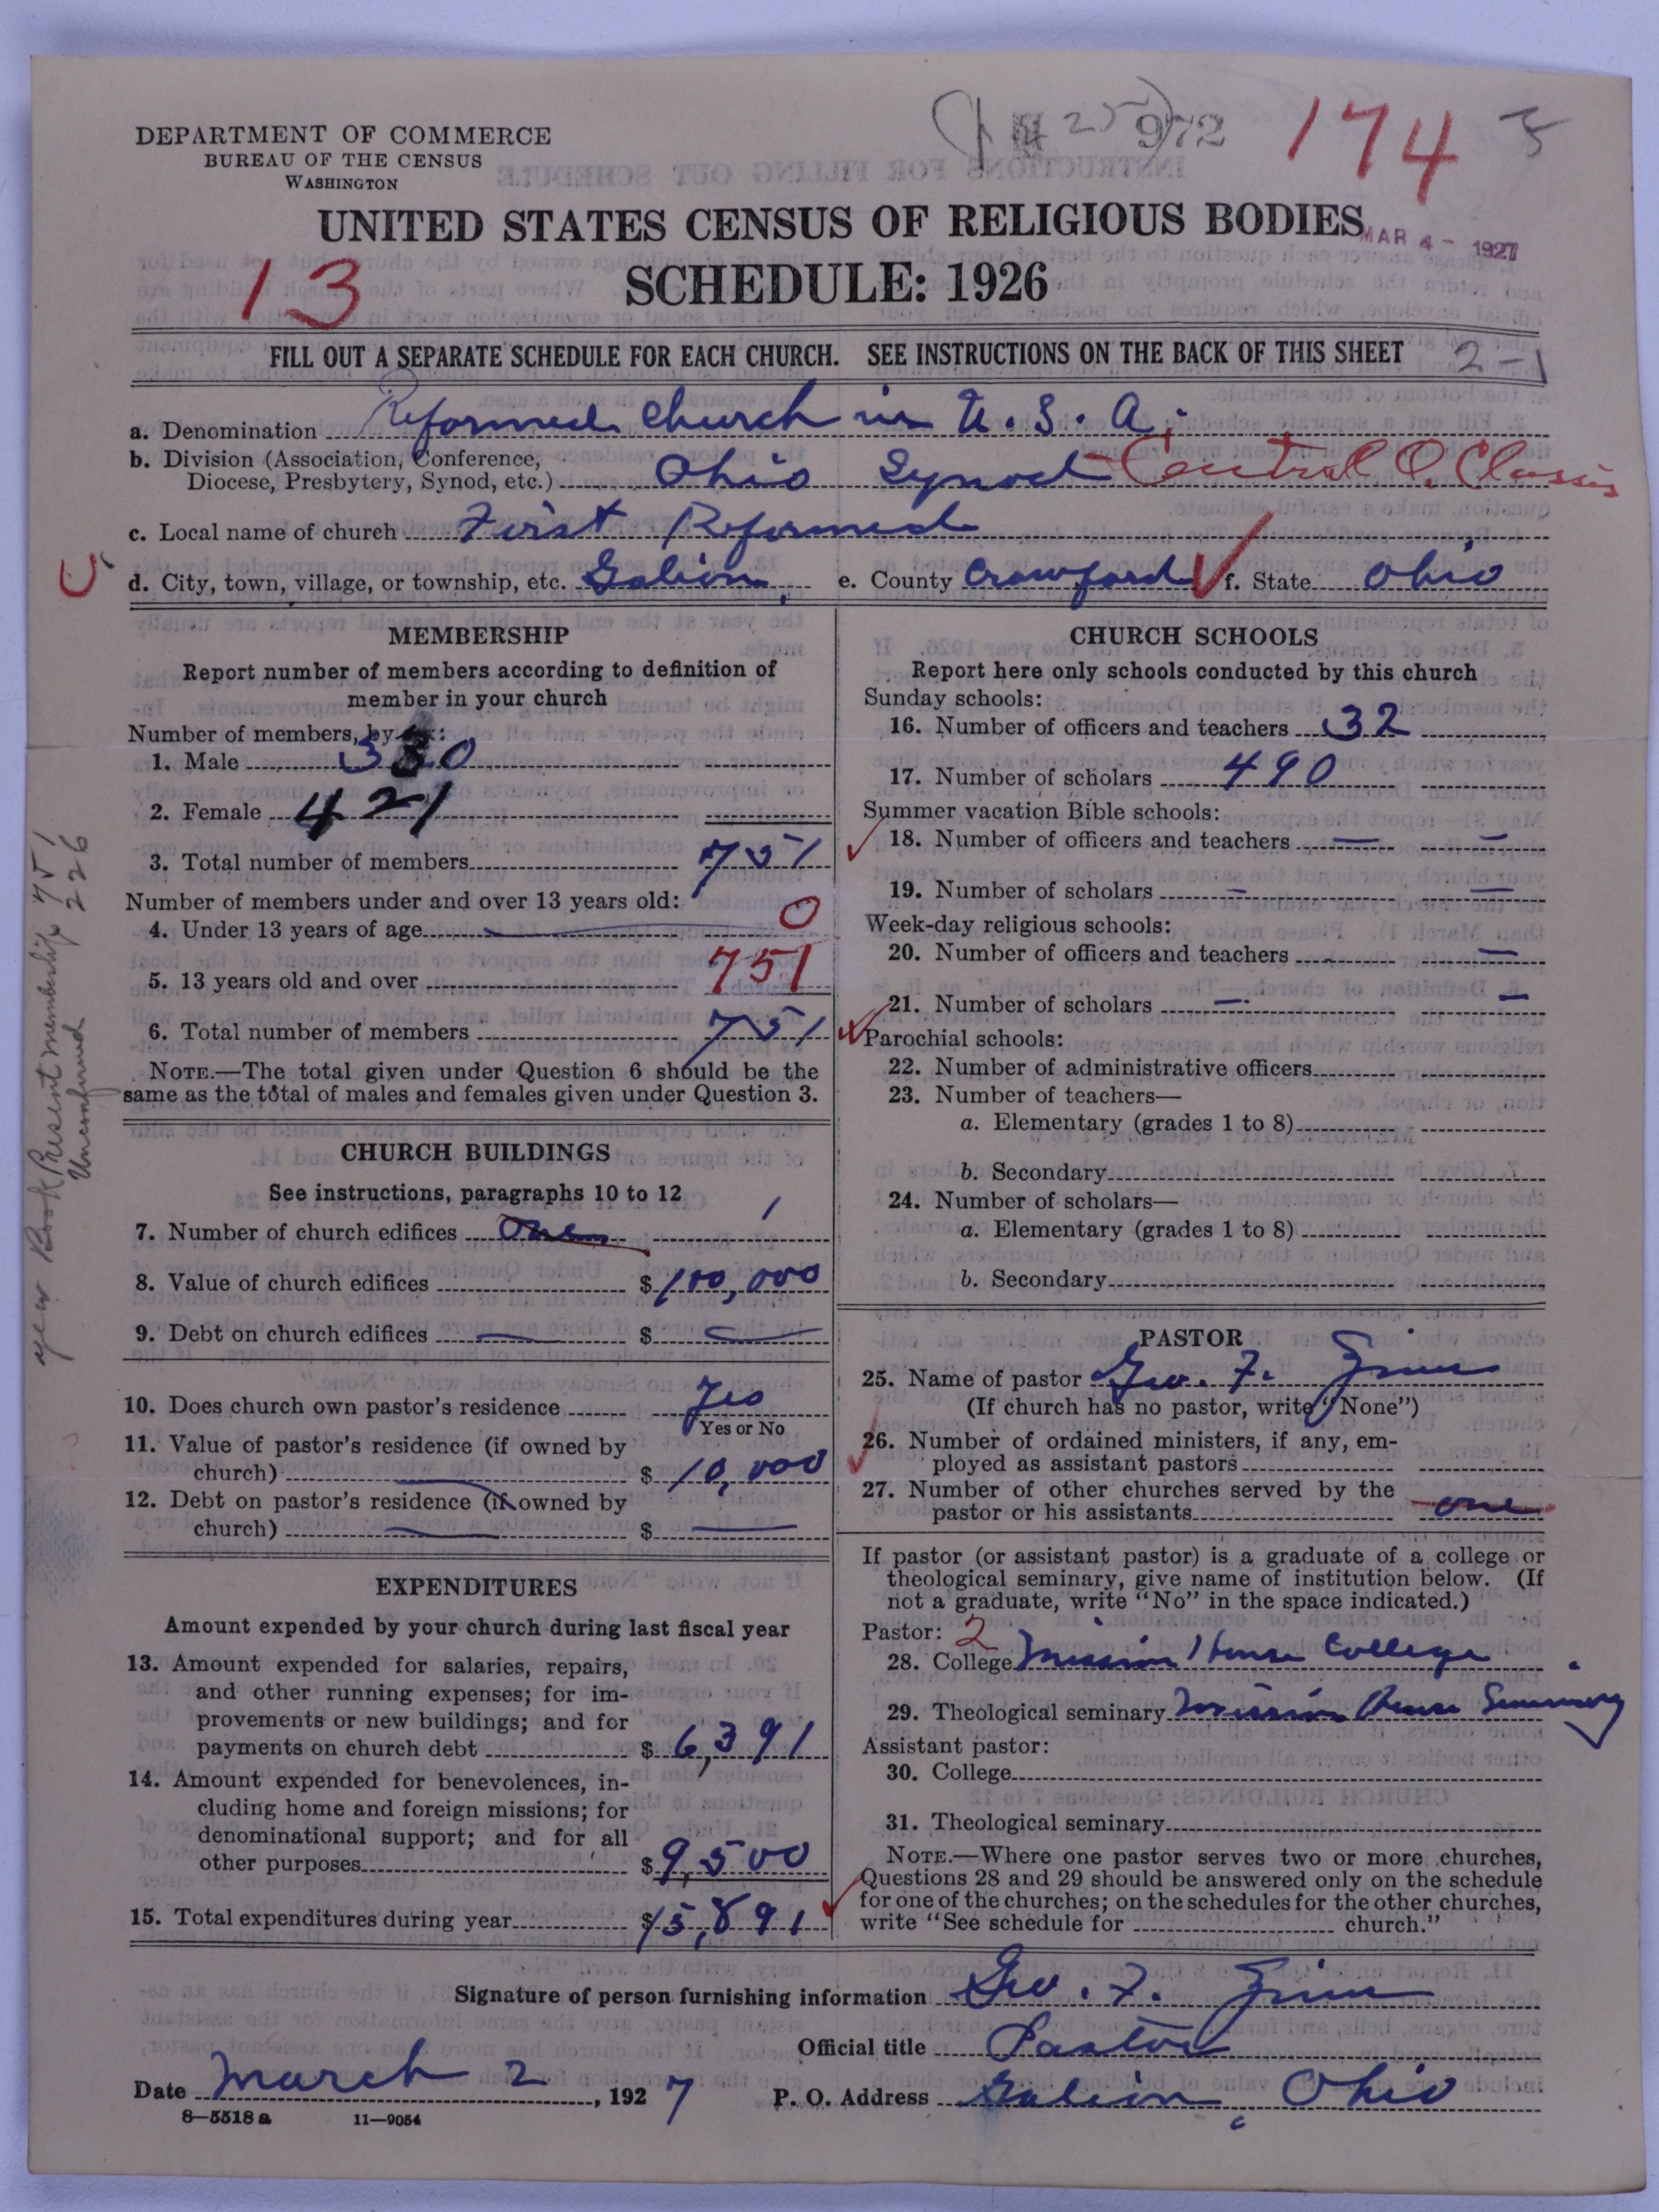 972 174
DEPARTMENT OF COMMERCE
BUREAU OF THE CENSUS
WASHINGTON
UNITED STATES CENSUS OF RELIGIOUS BODIES
MAR 4 - 1927
13 SCHEDULE: 1926
FILL OUT A SEPARATE SCHEDULE FOR EACH CHURCH. SEE INSTRUCTIONS ON THE BACK OF THIS SHEET 2-1
a. Denomination Reformed Church in U.S.A.
b. Division (Association, Conference,
Diocese, Presbytery, Synod, etc.) Ohio Synod Central O. Classis
c. Local name of church First Reformed
d. City, town, village, or township, etc. Galion e. County Crawford f. State Ohio
MEMBERSHIP
Report number of members according to definition of
member in your church
Number of members, by sex:
1. Male 330
2. Female 421
3. Total number of members 751
Number of members under and over 13 years old:
4. Under 13 years of age 0
5. 13 years old and over 751
6. Total number of members 751
NOTE.—The total given under Question 6 should be the
same as the total of males and females given under Question 3.
CHURCH BUILDINGS
See instructions, paragraphs 10 to 12
7. Number of church edifices One 1
8. Value of church edifices $100,000
9. Debt on church edifices — $ —
10. Does church own pastor's residence Yes
Yes or No
11. Value of pastor's residence (if owned by
church) $10,000
12. Debt on pastor's residence (if owned by
church) — $ —
EXPENDITURES
Amount expended by your church during last fiscal year
13. Amount expended for salaries, repairs,
and other running expenses; for im-
provements or new buildings; and for
payments on church debt $6,391
14. Amount expended for benevolences, in-
cluding home and foreign missions; for
denominational support; and for all
other purposes $9,500
15. Total expenditures during year $15,891
CHURCH SCHOOLS
Report here only schools conducted by this church
Sunday schools:
16. Number of officers and teachers 32
17. Number of scholars 490
Summer vacation Bible schools:
18. Number of officers and teachers — —
19. Number of scholars — —
Week-day religious schools:
20. Number of officers and teachers — —
21. Number of scholars — —
Parochial schools:
22. Number of administrative officers
23. Number of teachers—
a. Elementary (grades 1 to 8)
b. Secondary
24. Number of scholars—
a. Elementary (grades 1 to 8)
b. Secondary
PASTOR
25. Name of pastor Geo. F. Zinn
(If church has no pastor, write "None")
26. Number of ordained ministers, if any, em-
ployed as assistant pastors
27. Number of other churches served by the
pastor or his assistants one
If pastor (or assistant pastor) is a graduate of a college or
theological seminary, give name of institution below. (If
not a graduate, write "No" in the space indicated.)
Pastor: 2
28. College Mission House College
29. Theological seminary Mission House Seminary
Assistant pastor:
30. College
31. Theological seminary
NOTE.—Where one pastor serves two or more churches,
Questions 28 and 29 should be answered only on the schedule
for one of the churches; on the schedules for the other churches,
write "See schedule for church."
Signature of person furnishing information Geo. F. Zinn
Official title Pastor
Date March 2, 1927 P. O. Address Galion, Ohio
8—5518 a 11—9054
Year Book Present membership 751
Unconfirmed 226